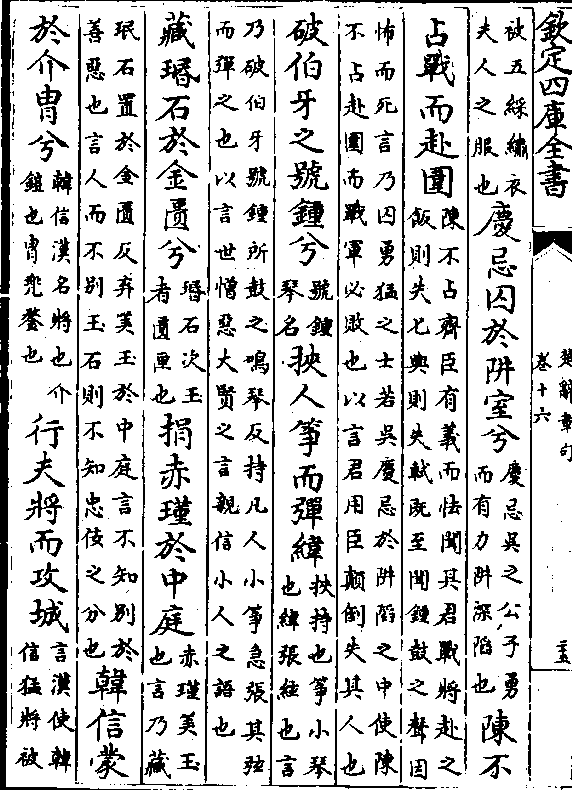 欽定四庫全書
楚辭章句
卷十六
被五綵繡衣
夫人之服也
慶忌囚於阱室兮
慶忌吳之公子勇
而有力阱深陷也
陳不
占戰而赴圍
陳不占齊臣有義而怯聞其君戰將赴之
飯則失匕輿則失軾既至聞鍾鼓之聲因
怖而死言乃囚勇猛之士若吳慶忌於阱陷之中使陳
不占赴圍而戰軍必敗也以言君用臣顛倒失其人也
破伯牙之號鍾兮
號鍾
琴名
挾人箏而彈緯
挾持也箏小琴
也緯張絃也言
乃破伯牙號鍾所鼓之鳴琴反持凡人小箏急張其弦
而彈之也以言世憎惡大賢之言親信小人之語也
藏瑉石於金匱兮
瑉石次玉
者匱匣也
捐赤瑾於中庭
赤瑾美玉
也言乃藏
珉石置於金匱反弃美玉於中庭言不知別於
善惡也言人而不別玉石則不知忠佞之分也
韓信蒙
於介胄兮
韓信漢名將也介
鎧也胄兜鍪也
行夫將而攻城
言漢使韓
信猛將被